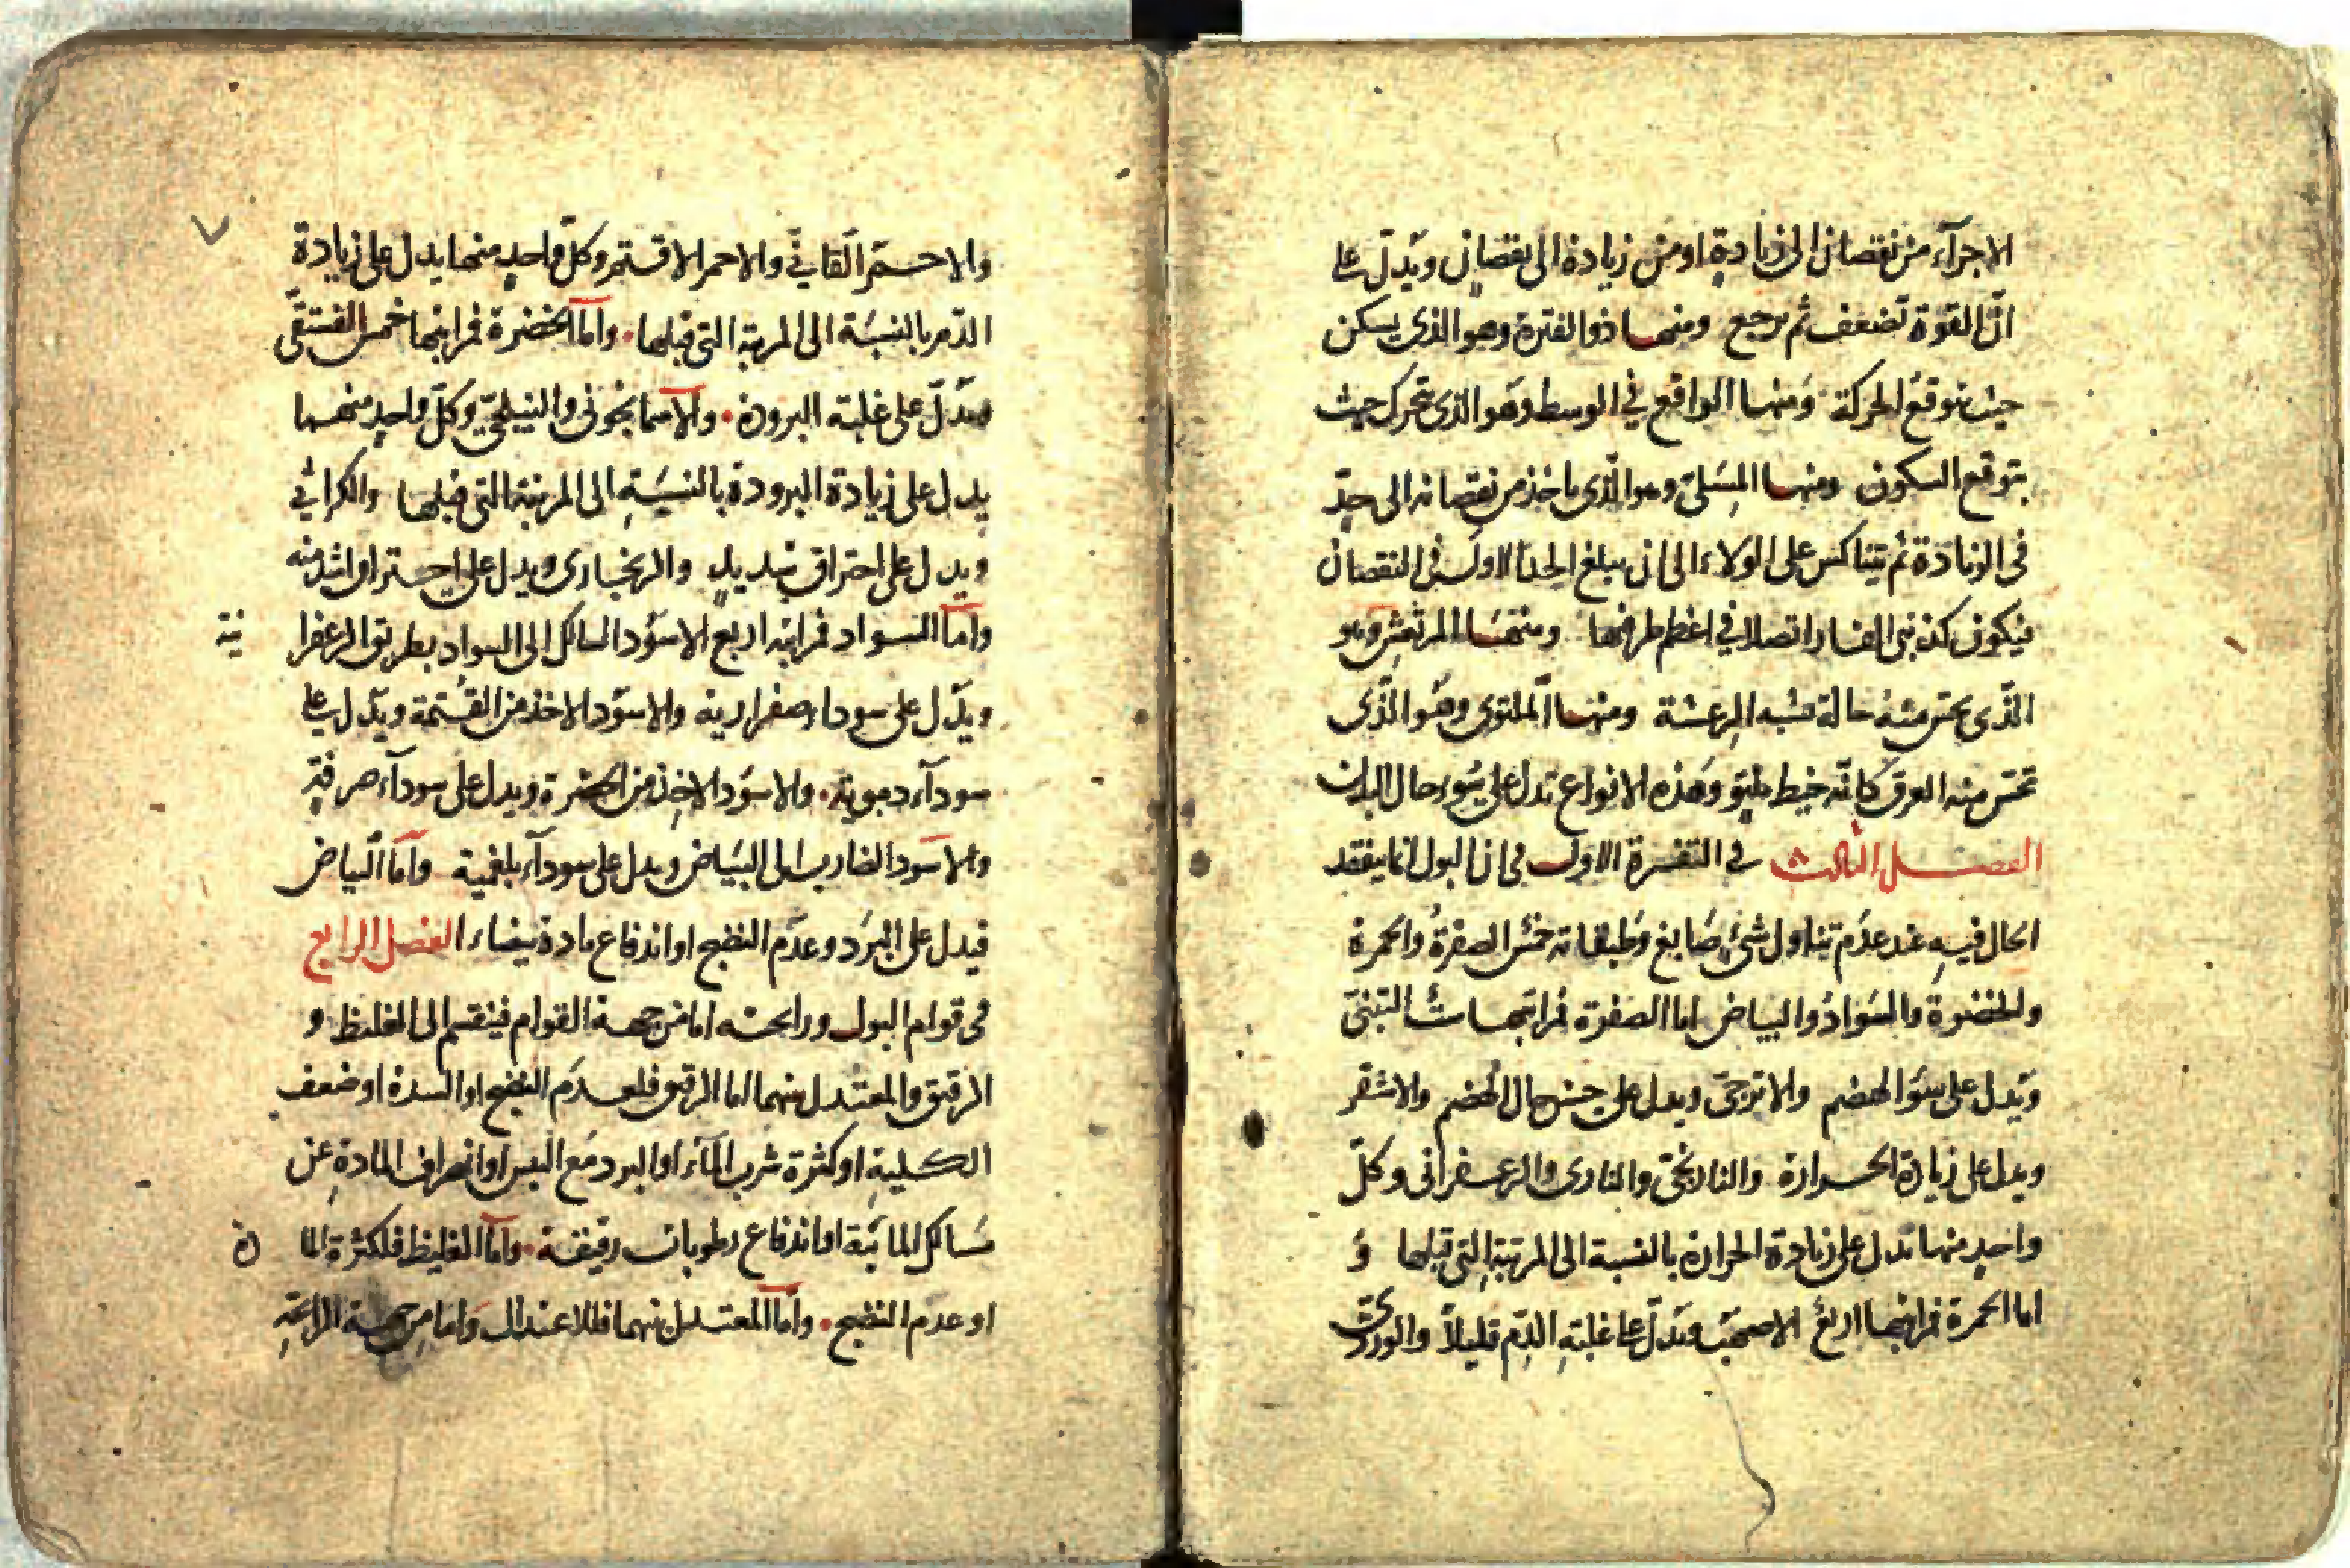 الاجزآء من نقصان الى زيادةٍ او من زيادة الى نقصانٍ ويدلّ على
انّ القوّة تضعف ثم ترجع ومنها ذو الفترة وهو الذى يسكن
حيث يتوقع الحركة ومنها الواقع في الوسط وهو الذى يتحرك حيث
يتوقع السكون ومنها المسَلىّ وهو الّذى ياخذ من نقصانه الى حدٍّ
فى الزيادة ثم يتناكس على الولاء الى ان يبلغ الحد الاول فى النقصان
فيكون كذنبى الفار اتصلا في اعظم طرفيهما ومنها المرتعش وهو
الذّى يحس منه حالة تشبه الرعشة ومنها الملتوى وهُو الذّى
تحس منه العرق كانّه خيط ملتوٍ وهذه الانواع تدل على سُوء حال البدن
الفصــل الثالث في التفسرة الاول فى ان البول انما يفتقد
الحال فيهِ عند عدَم تناول شئٍ صَابغ وَطبقاته خمس الصفرةُ والحمرة
والخضرة والسّوادُ والبياض اما الصفرة فمراتبها ستٌ التبنىّ
ويدل على سوَء الهضم والاترجىّ ويدل على حسن حال الهضم والاشقر
ويدل على زيادة الحــرارة والنارنجىّ والنارى والزعــفرانى وكلّ
واحدٍ منها تدل على زيادة الحرارة بالنسبة الى المرتبةِ التى قبلها وَ
اما الحمرة فمراتبها اربع الاصهب ويَدلّ على غلبةِ الدّم قليلاً والوردىّ
والاحــمّر القانى والاحمر الاقــتم وكلّ واحدٍ منها يدل على زيادة
الدّم بالنسبَة الى المرتبة التى قبلها • وامّا الخضرة فمراتبها خمس الفستقّى
ويدّل على غلبة البرودة • والاسمانجونى والنيلجّى وكلّ واحدٍ منهــما
يدل على زيادة البرودة بالنسبَةِ الى المرتبة التى قبلها والكراثي
ويدل على احتراق شديدٍ والزنجارى ويدل على احــتراق اشد منه
وامّا السواد فمراتبه اربع الاسوَد السالك الى السواد بطريق الزعفرا نية
ويدّل على سوداء صفراوية والاسوّد الاخذ من القُتمة ويدّل على
سودآء دموية • والاسوَد الاخِذ من الخضرة ويدل على سودآء صرفةٍ
والاسوَد الضارب الى البيَاض ويدل على سودآء بلغمية وامّا البياض
فيدل على البرَد وعدَم النضج او اندفاع مادة بيضاء الفصل الرابع
فى قوام البول ورايحته اما من جهــة القوام فينقسم الى الغليظ و
الرقيق والمعتدل بينهما اما الرقيق فلعــدَم النضج او السدة او ضعف
الكــليةِ او كثرة شرب المآء او البرد مَع اليبس او انصراف المادةِ عن
مَسالك المائيّة او اندفاع رطوبات رقيقة • وامّا الغليظ فلكثرة الما دة
او عدم النضج • وامّا المعتــدل بينهما فللاعتدال وَاما من جهــة الرائحةِ